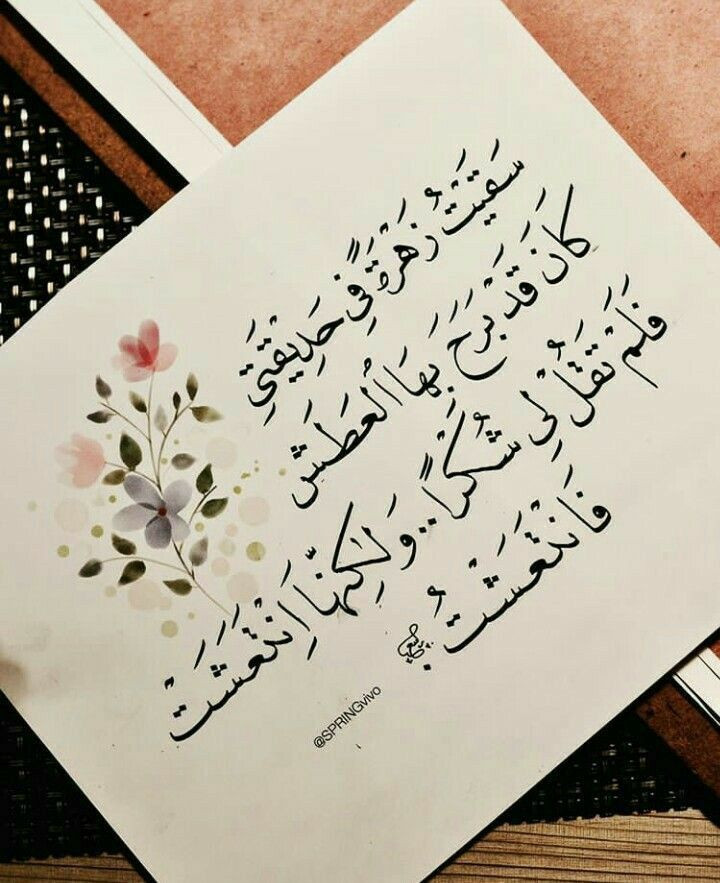 سَقَيْتُ زَهْرَةً فِي حَدِيقَتِي
كَانَ قَدْ بَرَحَ بِهَا الْعَطَشُ
فَلَمْ تَقُلْ لِي شُكْرًا.. وَلٰكِنَّهَا اِنْتَعَشَتْ
فَانْتَعَشْتُ
@SPRINGvivo